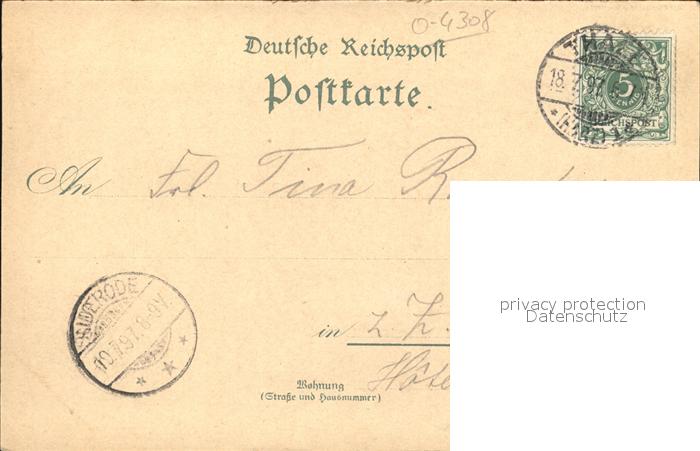 0-4308
Deutsche Reichspost
Postkarte.
THALE
18.7.97
(HARZ)
5
PFENNIG
REICHSPOST
An Frl. Tina R
privacy protection
Datenschutz
RODE
19.7.97. 8-9V.
in z. Z.
Wohnung
(Straße und Hausnummer)
Hôte